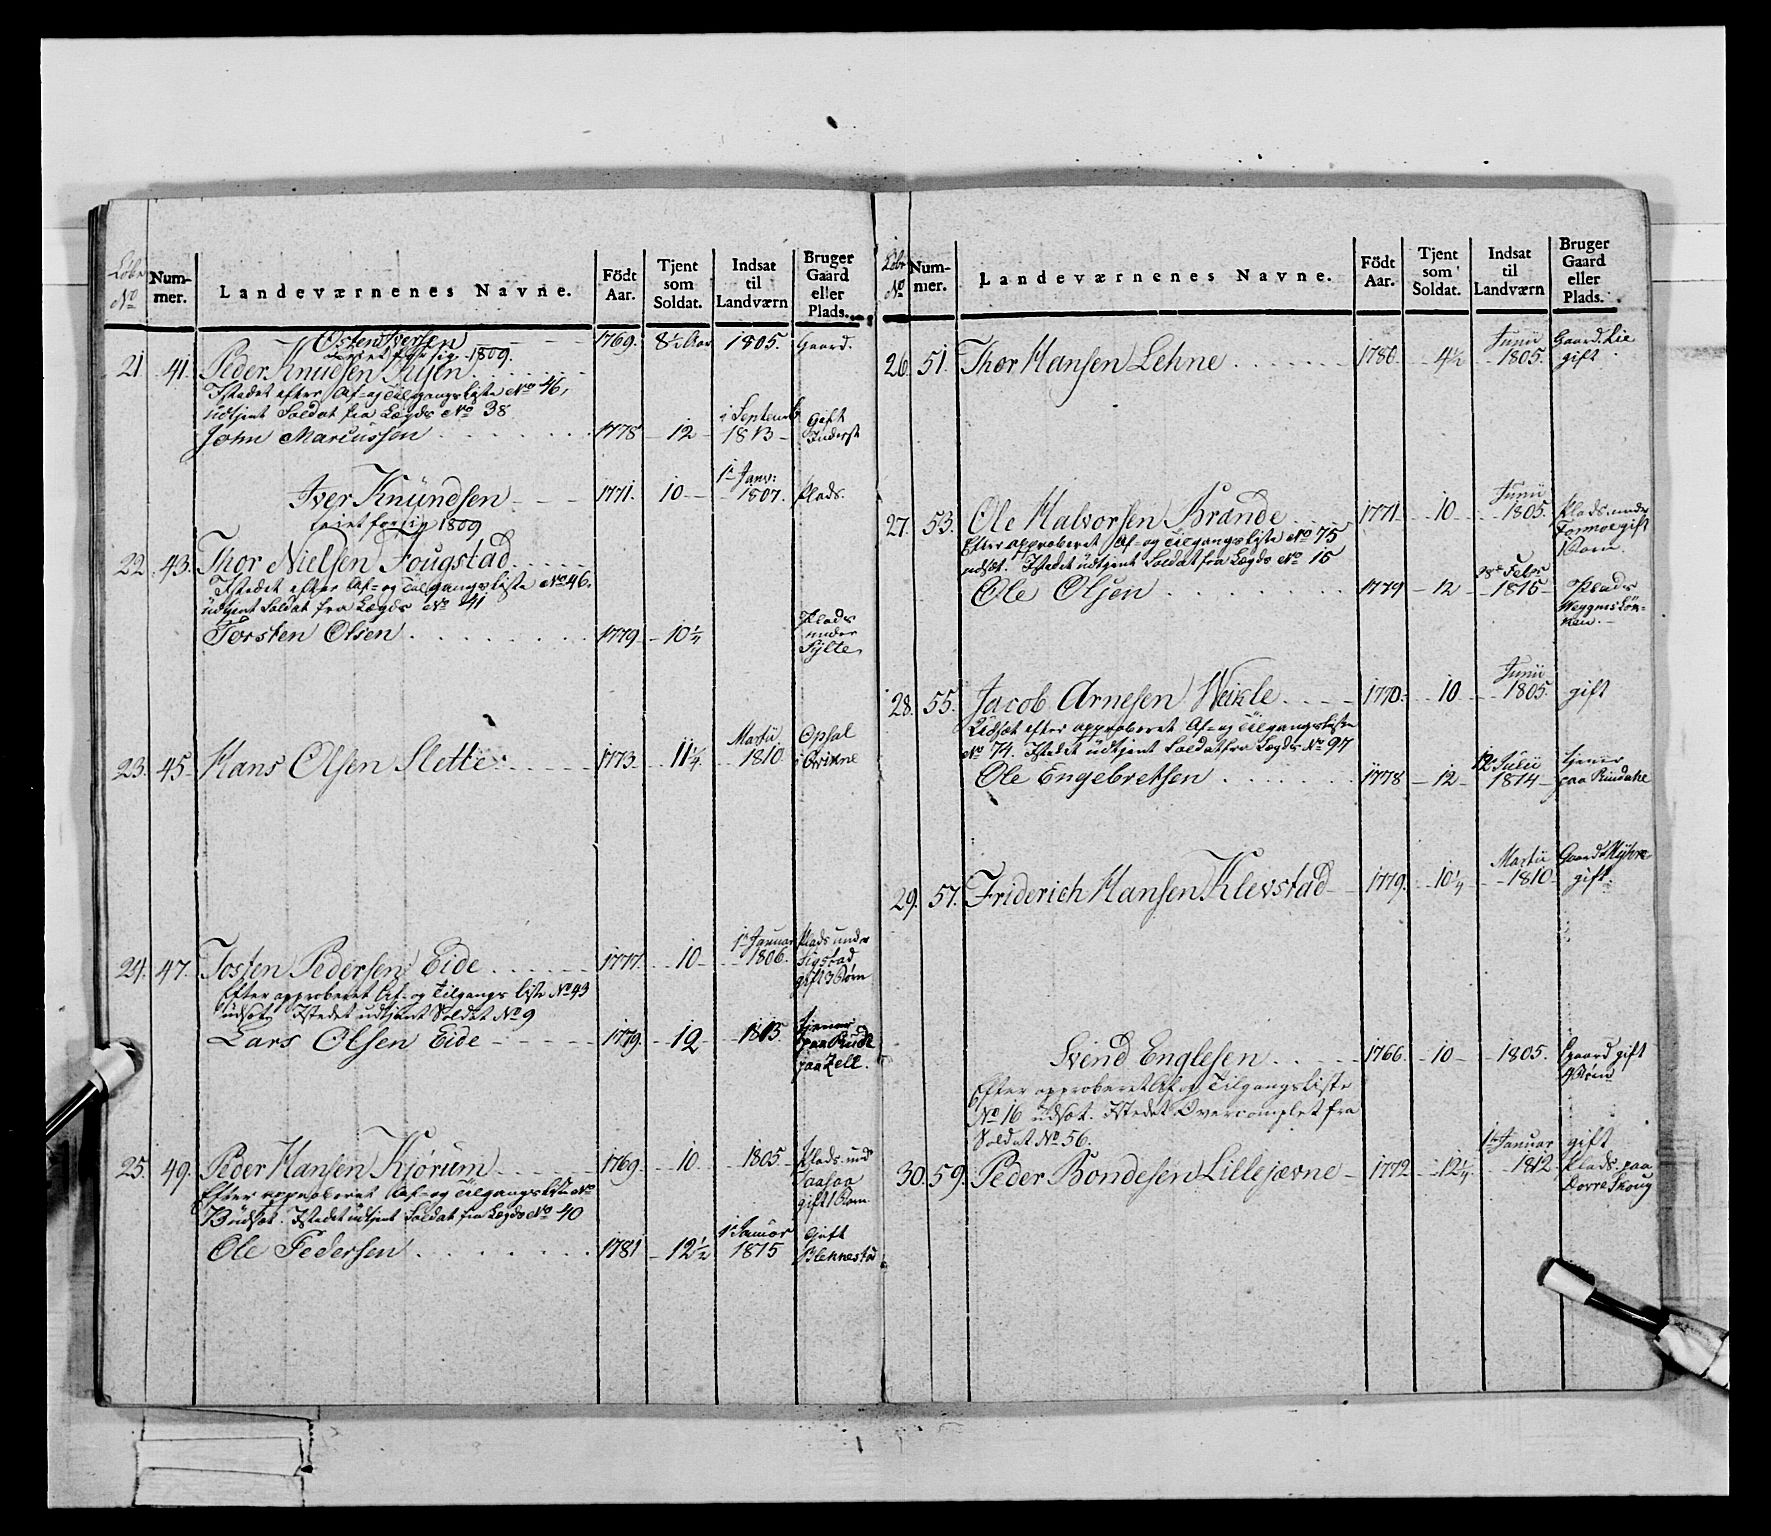 Löbe No Nummer. Landeværnenes Navne. Födt Aar. Tjent som Soldat. Indsat til Landværn Bruger Gaard eller Plads.
Osten Iversen 1769. 8½ Aar 1805. Gaard.
leiet for sig 1809.
21. 41. Peder Knudsen
Istedet efter Af- og Tilgangsliste No 46,
udtjent Soldat fra Lægds No 38
John Marcussen 1778 12 i Septemb 1813 Gift Inderst
Iver Knündsen 1771. 10 1e Janv: 1807. Plads.
leiet for sig 1809
22. 43. Thor Nielsen Fougstad
Istedet efter Af- og Tilgangsliste No 46.
udtjent Soldat fra Lægds No 41
Torsten Olsen 1779 10¼ Plads under Sylte
23. 45. Hans Olsen Slette 1773 11¼ Martii 1810 Opsal i Qvikne
24. 47. Tosten Pedersen Eide 1777. 10 1e Januar 1806. Plads under Sigstad gift 3 Börn
Efter approberet Af- og Tilgangs liste No 43
udsat. Istedet udtjent Soldat No 9
Lars Olsen Eide 1779. 12 1813 tjener paa Rudi paa
25. 49. Peder Hansen Kjörum 1769 10 1805 Plads und gift 1 Barn
Efter approberet Af- og Tilgangsliste No
udsat. Istedet udtjent Soldat fra Lægds No 40
Ole Pedersen 1781 12½ 1e Januar 1815 Gift
Löbe No Nummer. Landeværnenes Navne. Födt Aar. Tjent som Soldat. Indsat til Landværn Bruger Gaard eller Plads.
26. 51. Thor Hansen Lehne 1780. 4½ Junii 1805. Gaard. Lie gift
27. 53. Ole Halvorsen Brande 1771 10 Junii 1805. Plads. under Formoe gift 1 Barn.
Efter approberet Af- og Tilgangsliste No 75
udsat. Istedet udtjent Soldat fra Lægds No 15
Ole Olsen 1779 12 28e Febr 1815 Plads
28. 55. Jacob Arnesen Weikle 1770. 10 Junii 1805. gift
Udsat efter approberet Af- og Tilgangsliste
No 74. Istedet udtjent Soldat fra Lægds No 97
Ole Engebretsen 1778 12 12 Julii 1814 tjener paa Rindahl
29. 57. Friderich Hansen Klevstad 1779. 10¼ Martii 1810 Gaard Myhre gift
Svend Englesen 1766. 10 1805. Gaard gift 4 Börn
Efter approberet Af og Tilgangsliste
No 16 udsat. Istedet Overcomplet fra
Soldat No 56.
30. 59. Peder Bondesen Lillejævne 1772 12¼ 1e Januar 1812 gift Plads. paa Dovre Skoug